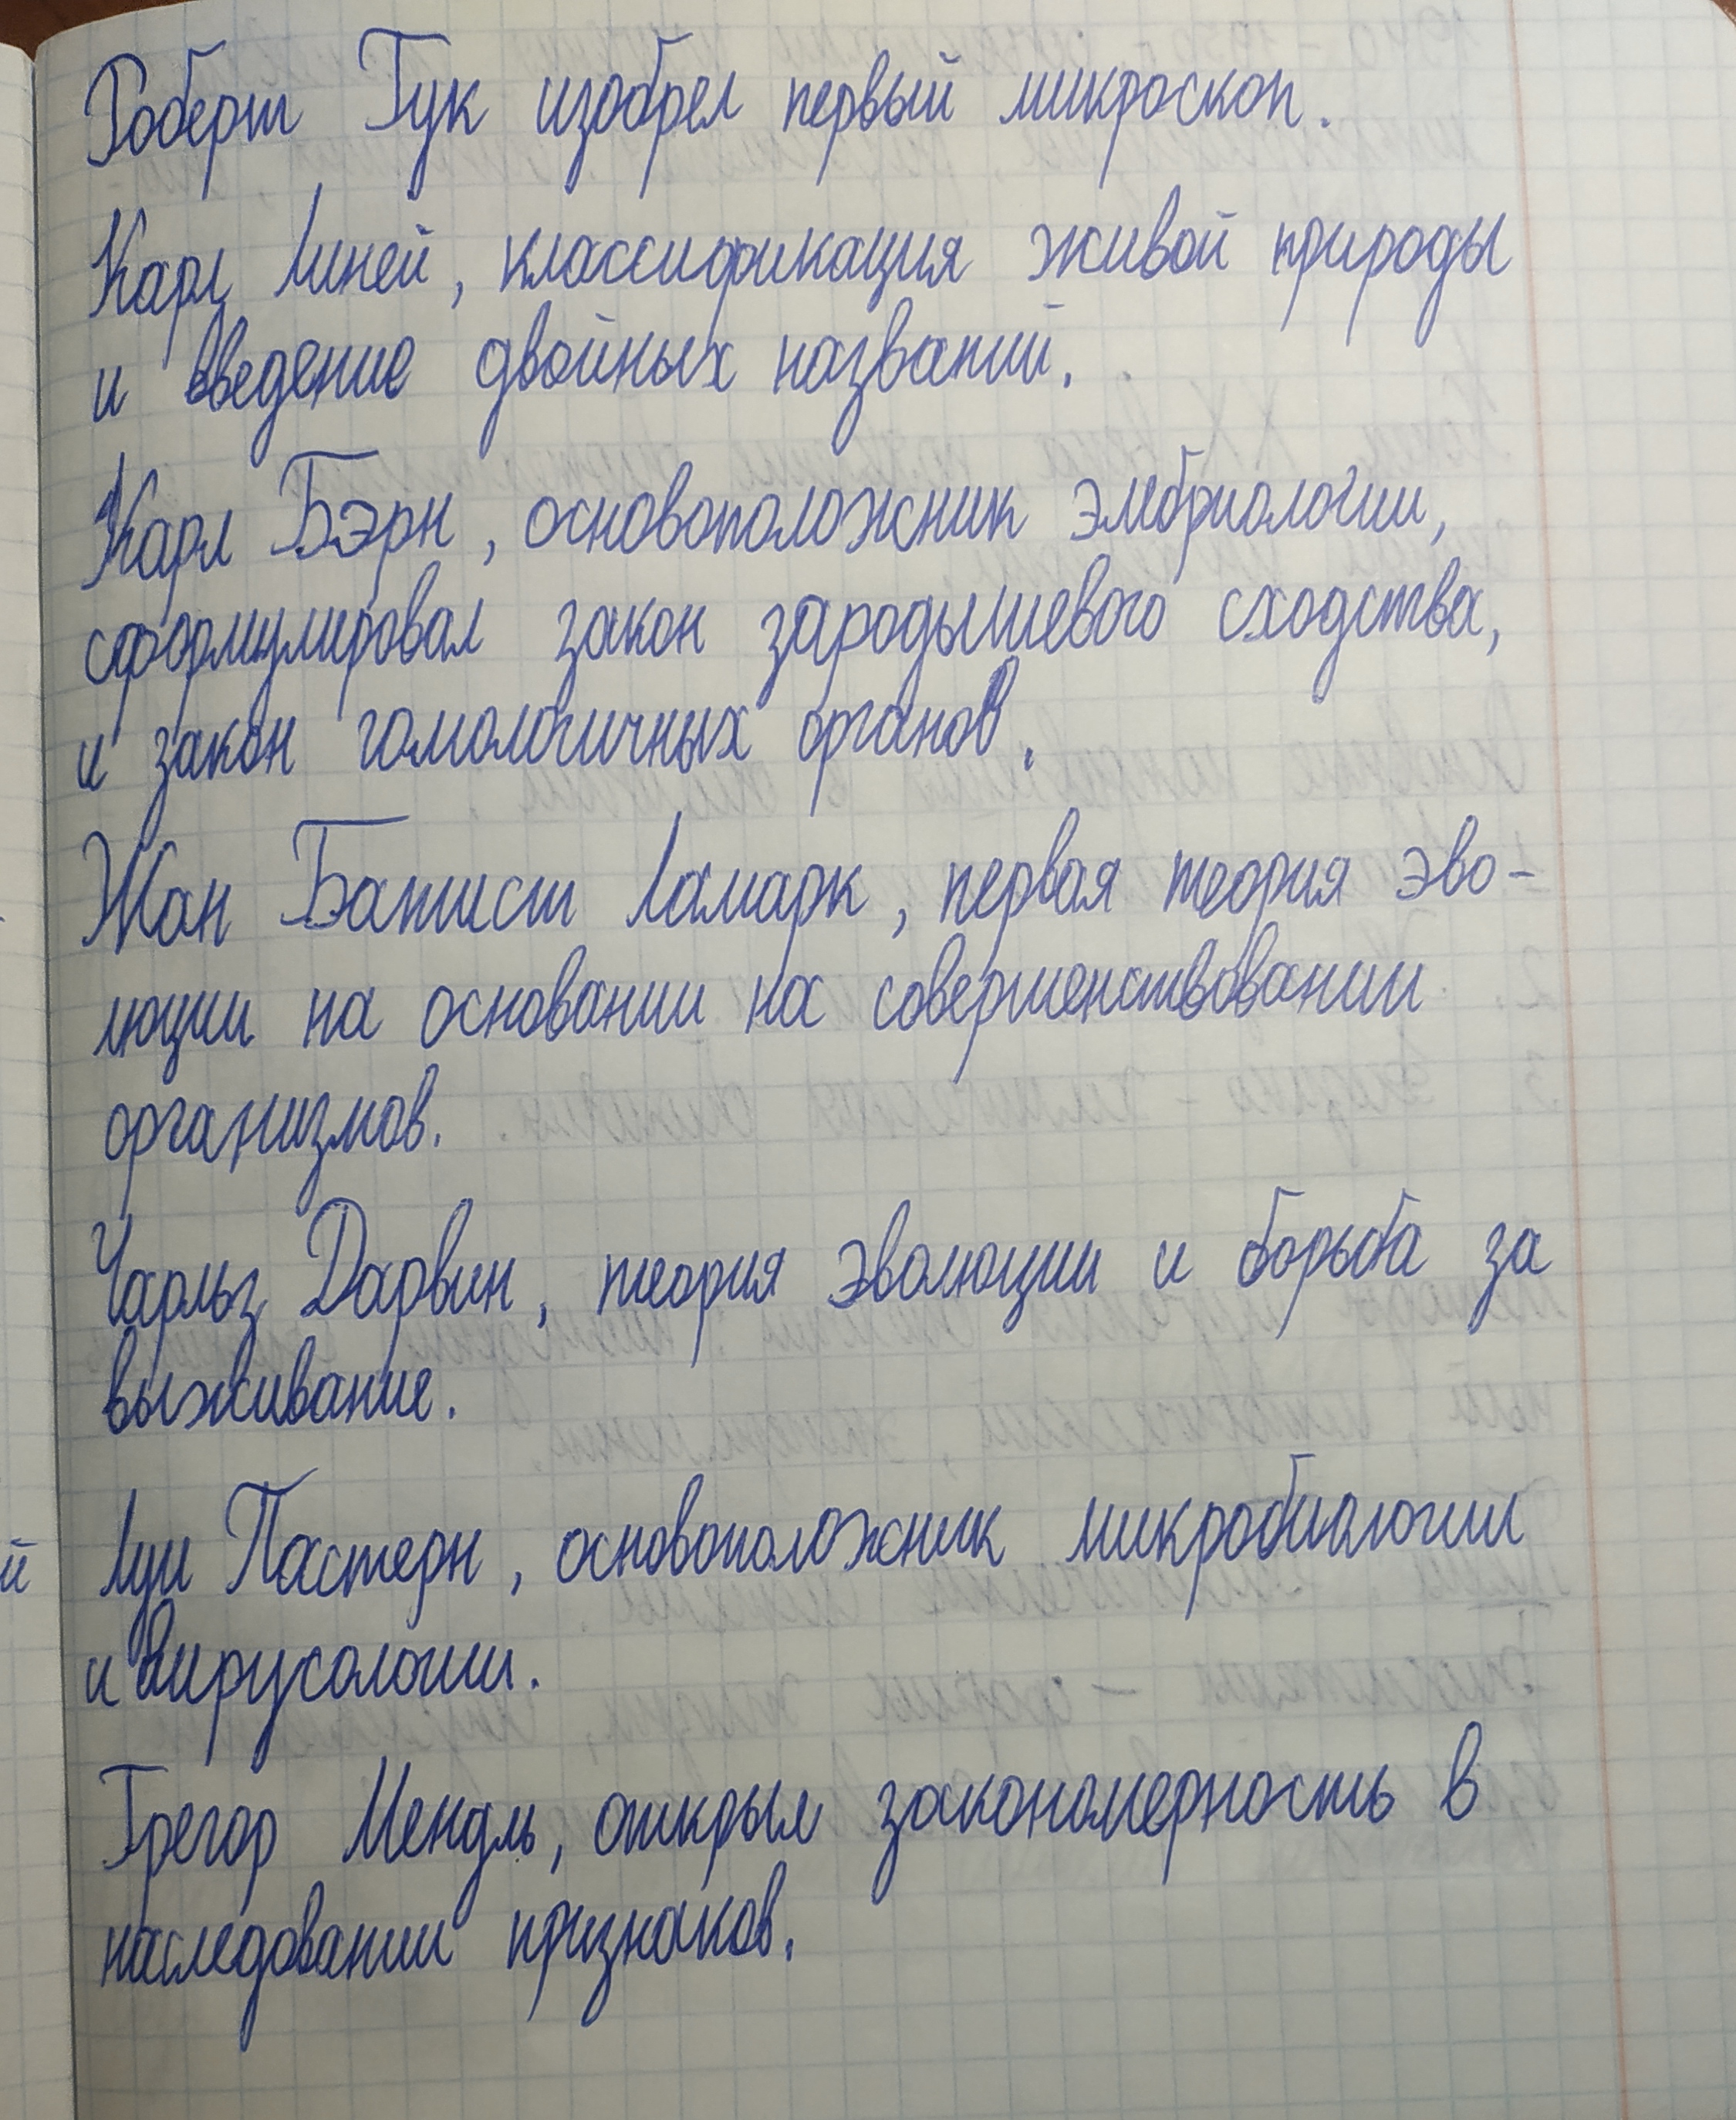 Роберт Гук изобрел первый микроскоп.
Карл Линей, классификация живой природы
и введение двойных названий.
Карл Бэрн, основоположник эмбриологии,
сформулировал закон зародышевого сходства,
и закон гомологичных органов.
Жан Батист Ламарк, первая теория эво-
люции на основании на совершенствовании
организмов.
Чарльз Дарвин, теория эволюции и борьба за
выживание.
Луи Пастерн, основоположник микробиологии
и вирусологии.
Грегор Мендль, открыл закономерность в
наследовании признаков.